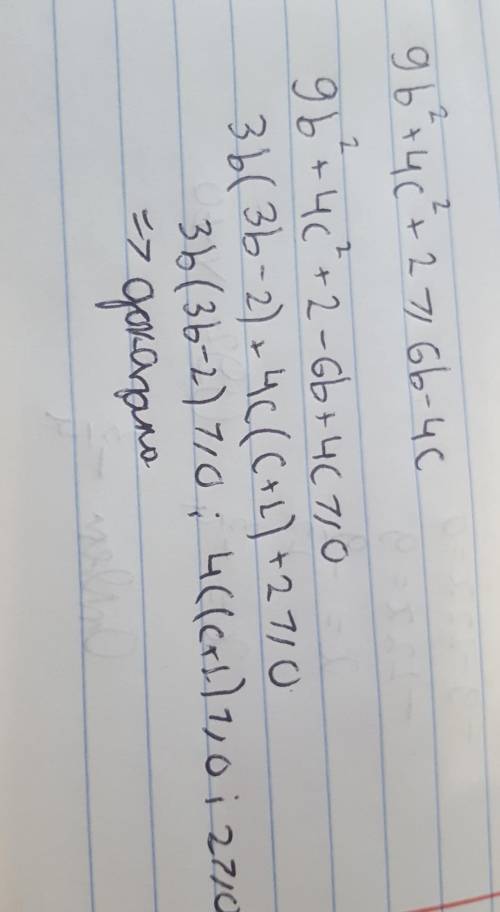 9b² + 4c² + 2 ⩾ 6b - 4c
9b² + 4c² + 2 - 6b + 4c ⩾ 0
3b(3b - 2) + 4c(c + 1) + 2 ⩾ 0.
3b(3b - 2) ⩾ 0; 4c(c + 1) ⩾ 0; 2 ⩾ 0
=> доказано